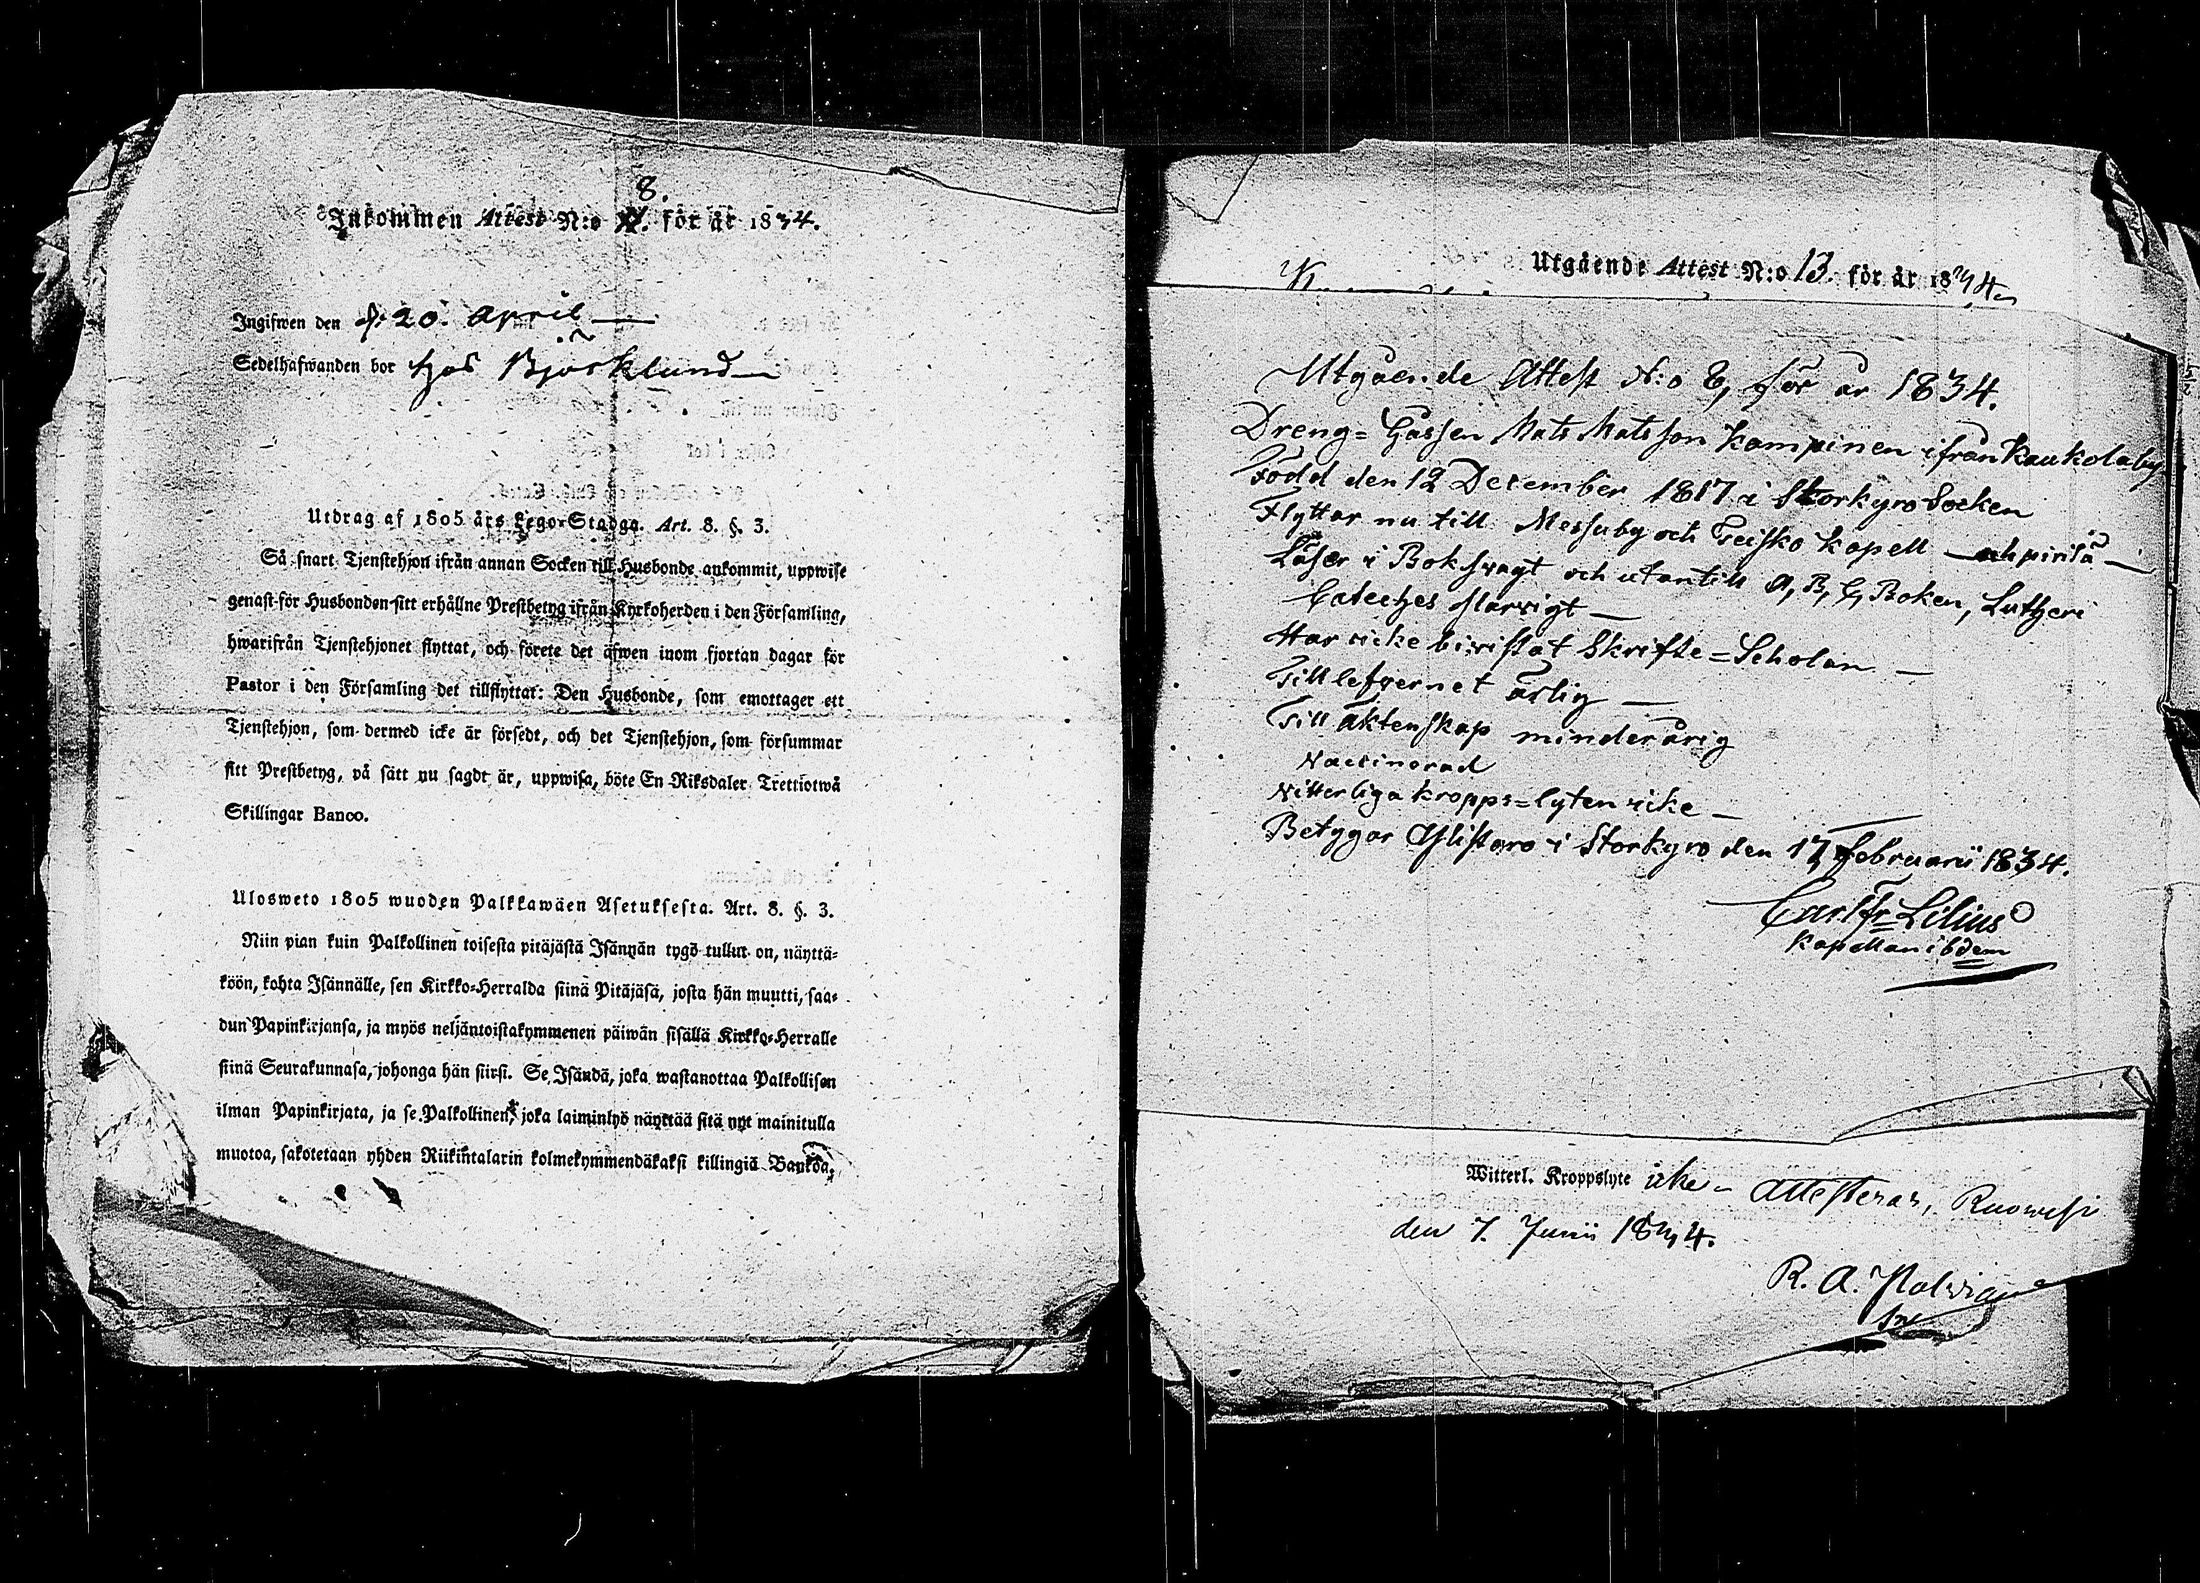 8.
Inkommen Attest N:o för år 1834.
Ingifwen den d. 20. April
Sedelhafwanden bor hos Björklund
Utdrag af 1805 års Lego-Stadga. Art. 8. §. 3.
Så snart Tjenstehjon ifrån annan Socken till Husbonde ankommit, uppwise
genast för Husbonden sitt erhållne Prestbetyg ifrån Kyrkoherden i den Församling,
hwarifrån Tjenstehjonet flyttat, och förete det äfwen inom fjortan dagar för
Pastor i den Församling det tillflyttat: Den Husbonde, som emottager ett
Tjenstehjon, som dermed icke är försedt, och det Tjenstehjon, som försummar
sitt Prestbetyg, på sätt nu sagdt är, uppwisa, böte En Riksdaler Trettiotwå
Skillingar Banco.
Ulosweto 1805 wuoden Palkkawäen Asetuksesta. Art. 8. §. 3.
Niin pian kuin Palkollinen toisesta pitäjästä Isännän tygö tullut on, näyttä-
köön, kohta Isännälle, sen Kirkko-Herralda siinä Pitäjäsä, josta hän muutti, saa-
dun Papinkirjansa, ja myös neljäntoistakymmenen päiwän sisällä Kirkko-Herralle
siinä Seurakunnasa, johonga hän siirsi. Se Isändä, joka wastanottaa Palkollisen
ilman Papinkirjata, ja se Palkollinen, joka laiminlyö näyttää sitä nyt mainitulla
muotoa, sakotetaan yhden Riikintalarin kolmekymmendäkaksi killingiä Bankoa.
Utgående Attest N:o 13. för år 1834
Utgående Attest N:o 8, för år 1834.
Dreng=Gossen Mats Matsson Kampinen ifrån Kaukolaby
Född den 12 December 1817 i Storkyro Socken
Flyttar nu till Messuby och Teisko Kapell
Läser i Bok svagt och utantill A, B, C, Boken, Lutheri
Cateches slarvigt
Har icke bivistat Skrifte=Scholan
Till lefvernet ärlig
Till Äktenskap minderårig
Vaccinerad
Vitterliga kropps=lyten icke
Betygar i Storkyro den 17 Februarii 1834.
Carl Fr Lilius
Kapellan ibdem
Witterl. Kroppslyte icke - Attesterar, Ruowesi
den 7. Junii 1834.
R. A.